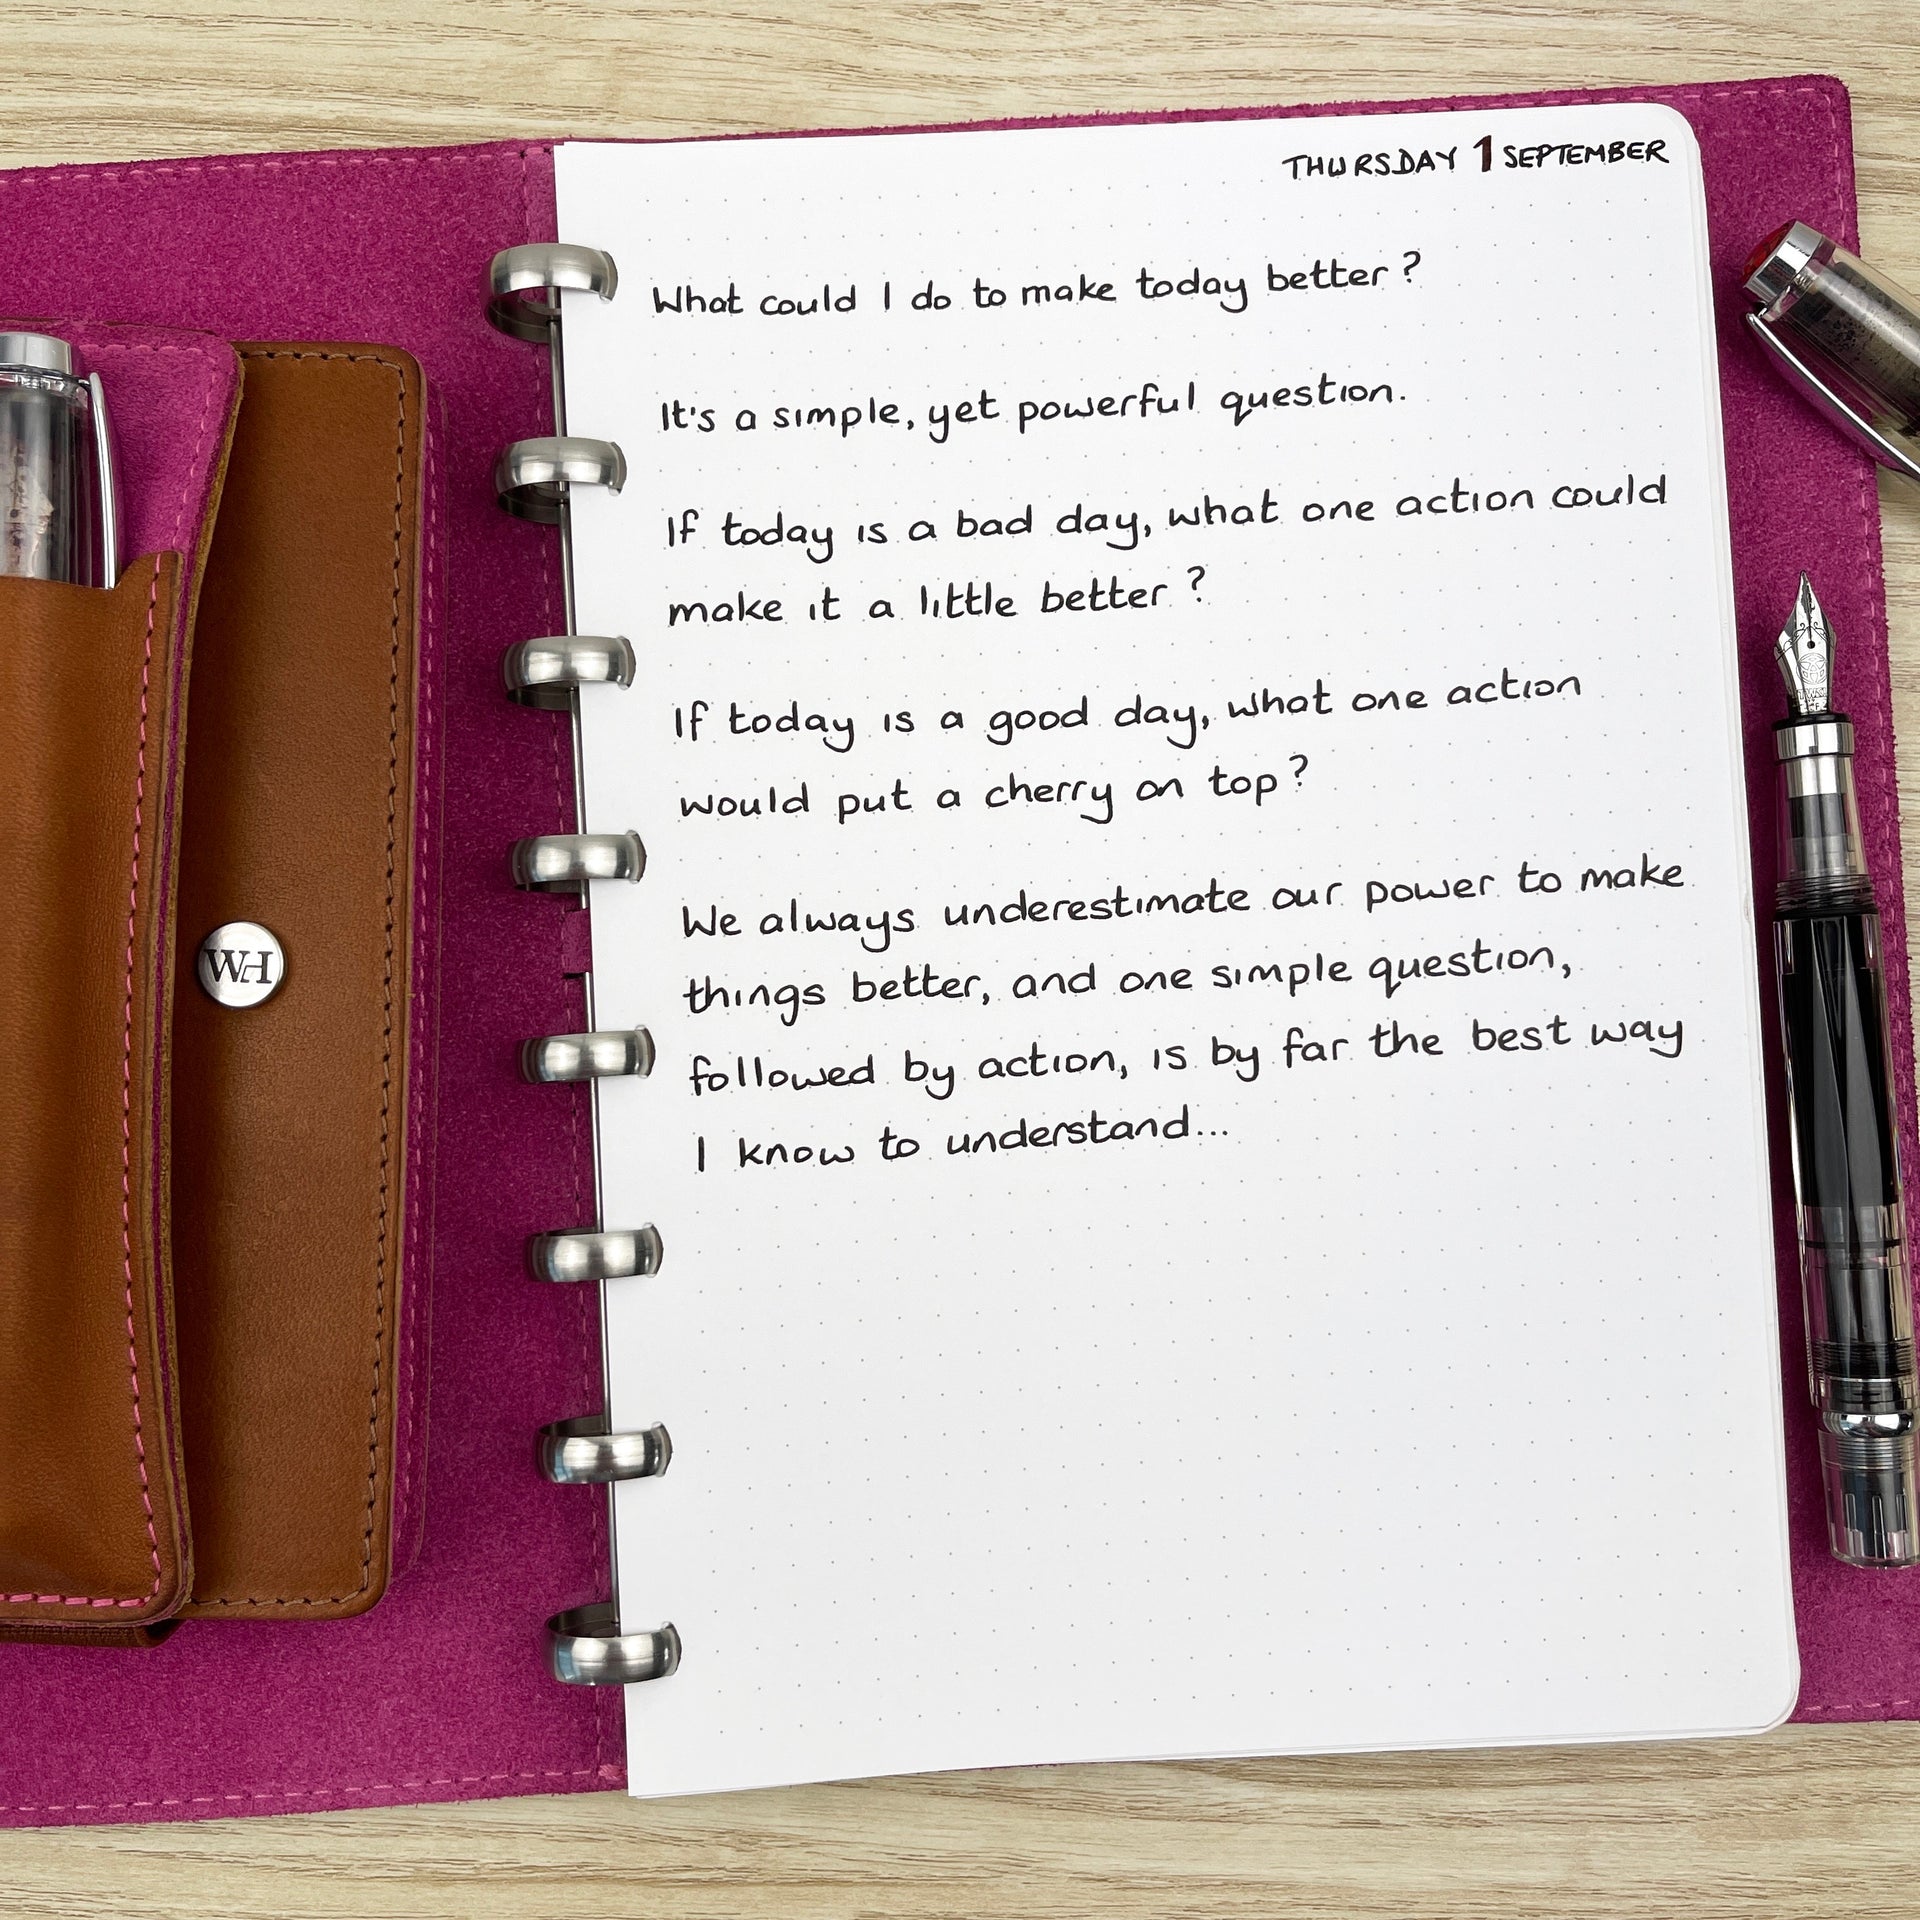 THURSDAY 1 SEPTEMBER
What could I do to make today better?
It's a simple, yet powerful question.
If today is a bad day, what one action could
make it a little better?
If today is a good day, what one action
would put a cherry on top?
We always underestimate our power to make
things better, and one simple question,
followed by action, is by far the best way
I know to understand...
WH